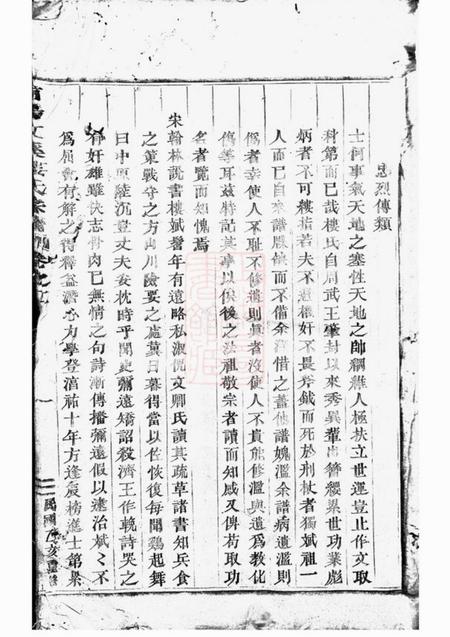 忠烈傳類
士何事氣天地之塞性天地之帥綱維人極扶立世運豈止作文取
科第而已哉樓氏自周武王肇封以來秀異輩出簪纓累世功業彪
炳者不可縷指若夫不避權奸不畏斧鉞而死於刑杖者獨斌祖一
人而已自來譜牒缺而不備余深惜之蓋他譜媿濫余譜病遺濫則
偽者幸使人不耻不修遺則真者沒使人不貴能修濫與遺為教化
傷等耳兹特記其事以俟後之法祖敬宗者讀而知感又俾苟取功
名者覽而知愧焉
宋翰林說書樓斌髫年有遠略私淑悅文卿氏讀其疏草諸書知兵食
之策戰守之方山川險要之處冀日幕得當以佐恢復每聞鷄起舞
曰中原陸沉豈丈夫安枕時乎聞史彌遠矯詔殺濟王作輓詩哭之
有奸雄雖快志骨肉已無情之句詩漸傳播彌遠假以逮治斌斌不
為屈會有解之得釋益潛心力學登淳祐十年方逢辰榜進士第累
民國乙亥重修